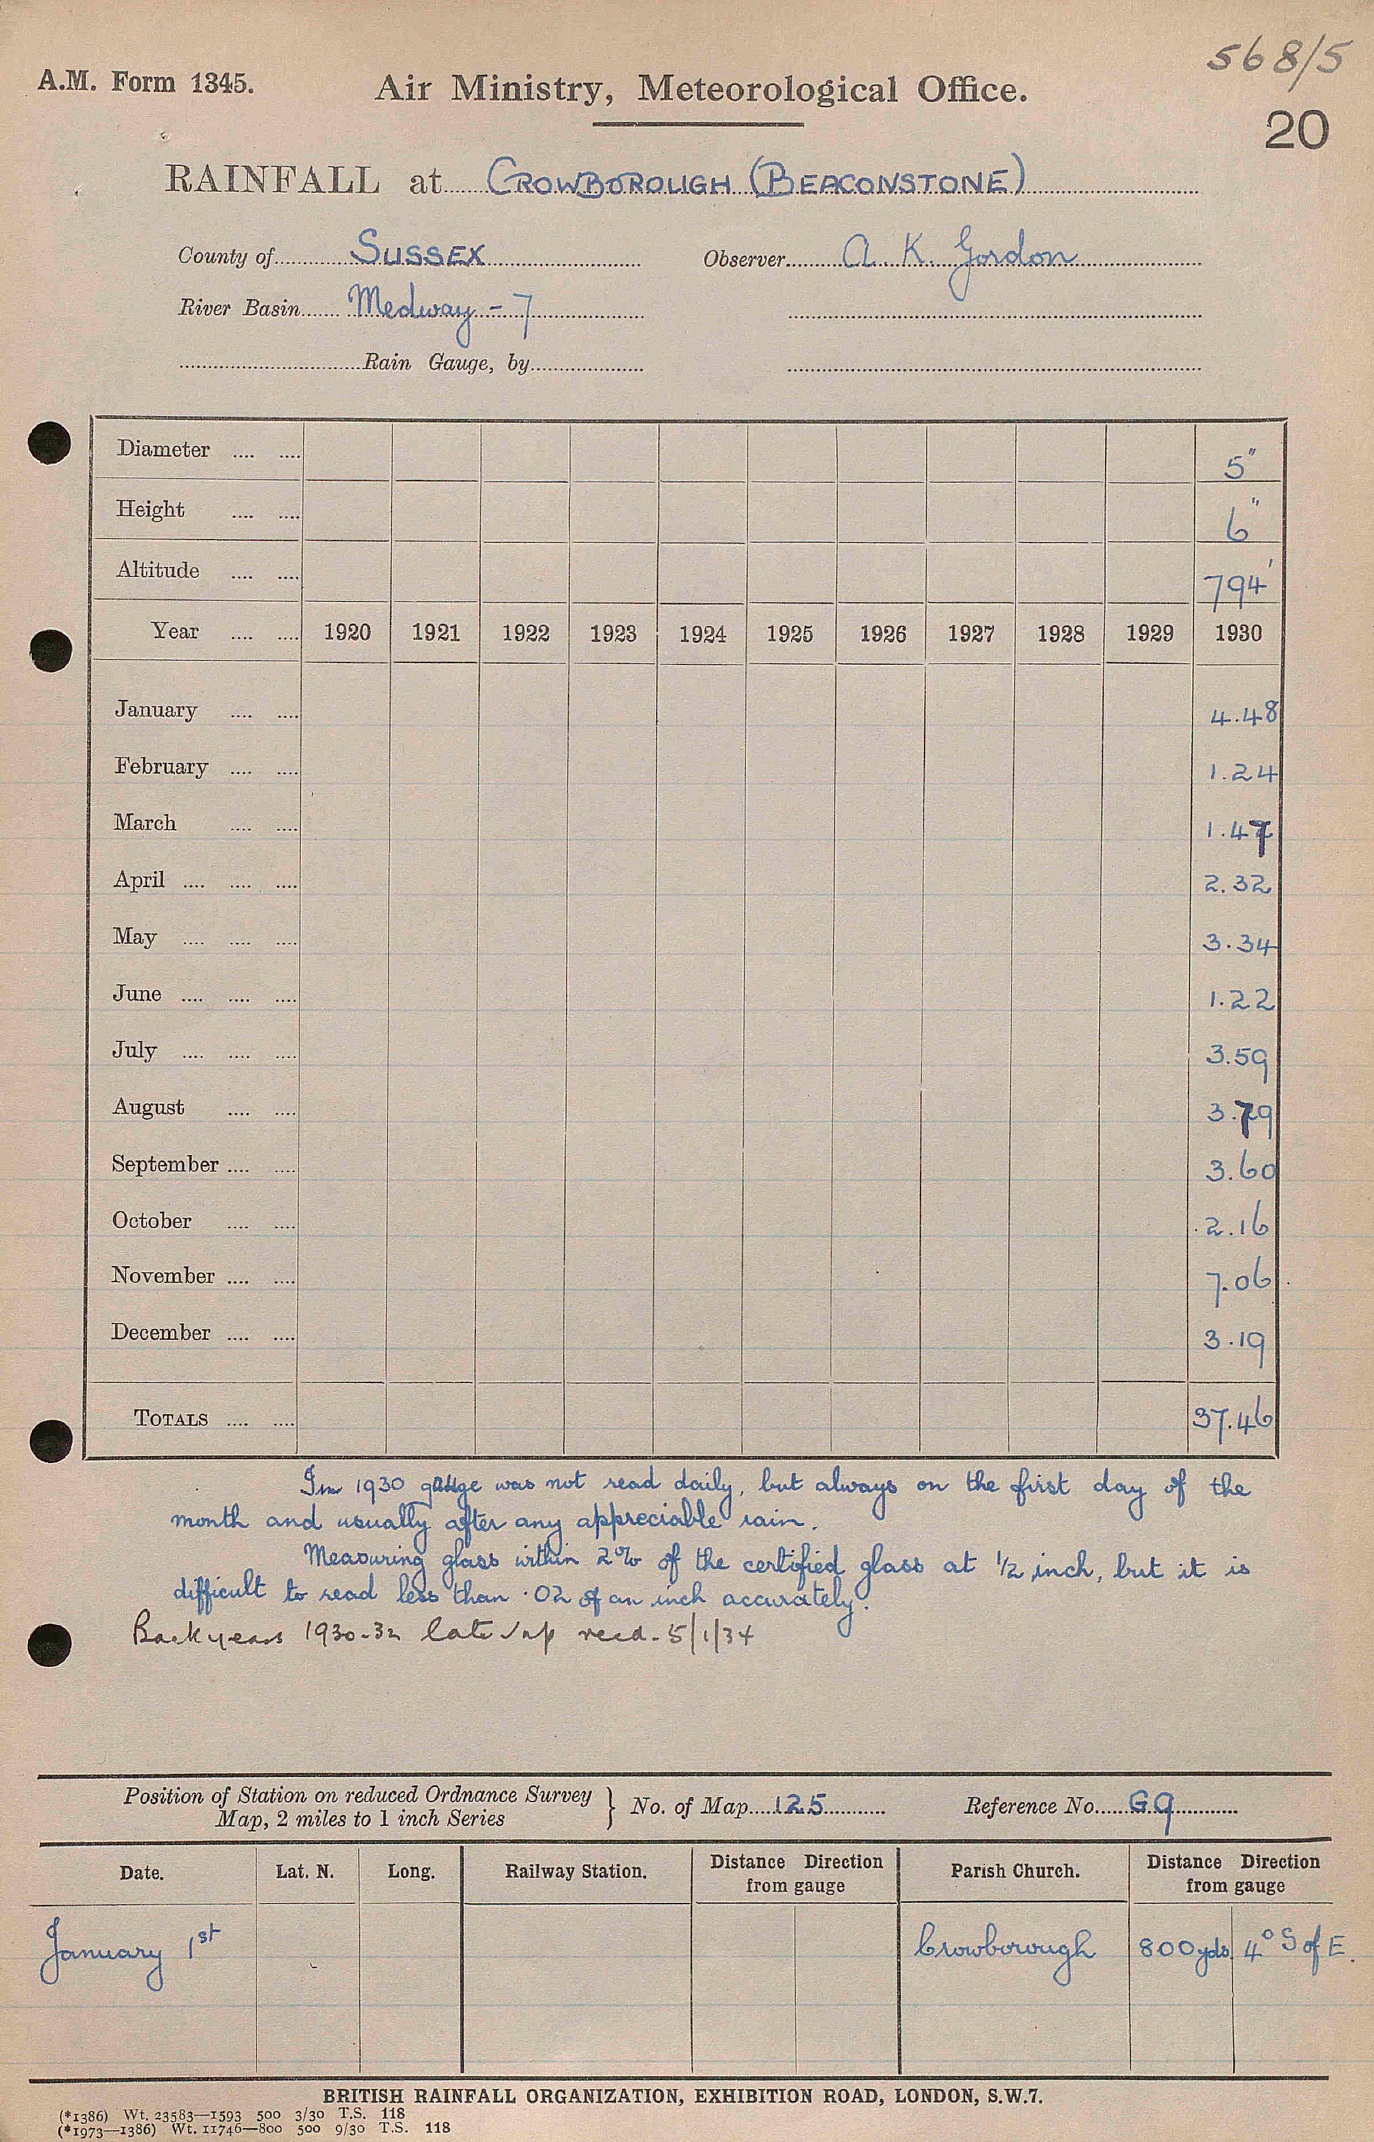 568/5
A.M. Form 1345.
Air Ministry, Meteorological Office.
20
RAINFALL at CROWBOROUGH (BEACONSTONE)
County of SUSSEX Observer A K. Gordon
River Basin Medway - 7
Rain Gauge, by
Diameter 5"
Height 6"
Altitude 794'
Year 1920 1921 1922 1923 1924 1925 1926 1927 1928 1929 1930
January 4.48
February 1.24
March 1.47
April 2.32
May 3.34
June 1.22
July 3.59
August 3.79
September 3.60
October 2.16
November 7.06
December 3.19
TOTALS 37.46
In 1930 gauge was not read daily, but always on the first day of the
month and usually after any appreciable rain.
Measuring glass within 2% of the certified glass at 1/2 inch, but it is
difficult to read less than .02 of an inch accurately.
Back years 1930-32 recd. 5/1/34
Position of Station on reduced Ordnance Survey
Map, 2 miles to 1 inch Series } No. of Map 125 Reference No. G9
Date. Lat. N. Long. Railway Station. Distance Direction from gauge Parish Church. Distance Direction from gauge
January 1st Crowborough 800 yds. 4° S of E.
BRITISH RAINFALL ORGANIZATION, EXHIBITION ROAD, LONDON, S.W.7.
(*1386) Wt. 23583—1593 500 3/30 T.S. 118
(*1973—1386) Wt. 11746—800 500 9/30 T.S. 118